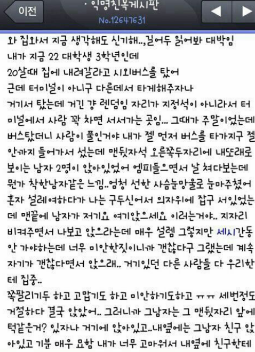 이전
익명친목게시판
No.12647631
와 집와서 지금 생각해도 신기해,,,길어두 읽어봐 대박임
내가 지금 22 대학생 3학년인데
20살때 집에 내려갈라고 시외버스를 탔어
근데 터미널이 아니구 다른데서 타게해주자나
거기서 탔는데 거긴 걍 랜덤임 자리가 지정석이 아니라서 터
미널에서 사람 꽉 차면 서서가는 곳임... 그때가 주말이었는데
버스탔더니 사람이 풀인거야 내가 젤 먼저 버스를 타가지구 젤
안까지 들어가서 섰는데 맨뒷자석 오른쪽두자리에 내또래로
보이는 남자 2명이 앉아있었어 엠피들으면서 날 쳐다보는데
뭔가 착한남자같은 느낌..엄청 선한 사슴눈망울로 눈마주쳤어
혼자 설레여하다가 나는 구두신어서 의자위에 잡구 서있었는
데 맨끝에 남자가 저기요 여기앉으세요 이러는거야.. 지자리
비켜주면서 나보고 앉으라는데 매우 설렘 그렇지만 세시간동
안 가야하는데 너무 미안한짓이니까 괜찮다구 그랬는데 계속
자기가 괜찮다면서 앉으래.. 거기있던 다른 사람들 다 우리한
테 집중..
쪽팔리기두 하고 고맙기도 하고 미안하기도하고 ㅠㅠ 세번정도
거절하다 결국 앉았어.. 그러니까 그남자는 그 맨뒷자리 앞에
턱같은거? 있자나 거기에 앉아있고..내옆에는 그남자 친구 앉
아있고 기분 매우 묘함 내가 너무 고마워서 내옆에 친구한테